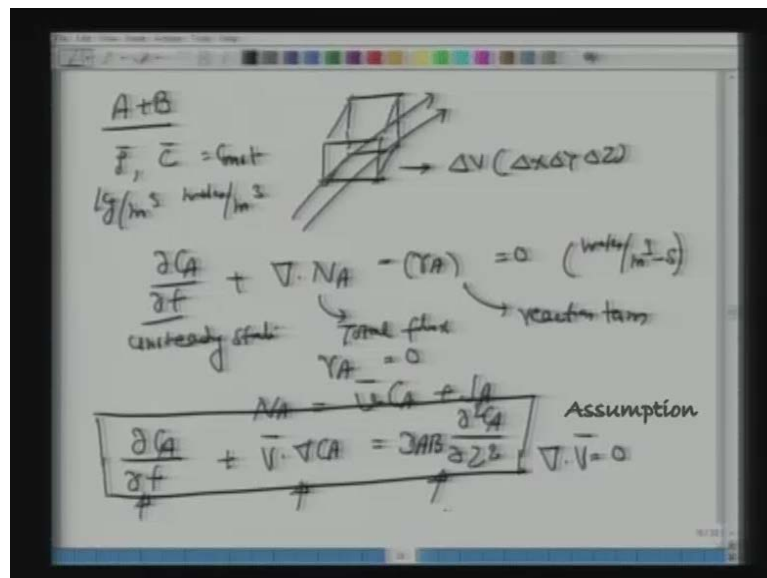 A+B
ρ̄, C̄ = Const
kg/m³ kmoles/m³
→ ΔV (ΔX ΔY ΔZ)
∂CA/∂t + ∇·NA - (rA) = 0 (kmoles/m³-s)
unsteady state Total flux reaction term
rA = 0
NA = v̄ CA + JA
Assumption
∂CA/∂t + V̄·∇CA = DAB ∂²CA/∂Z² ∇·V̄ = 0